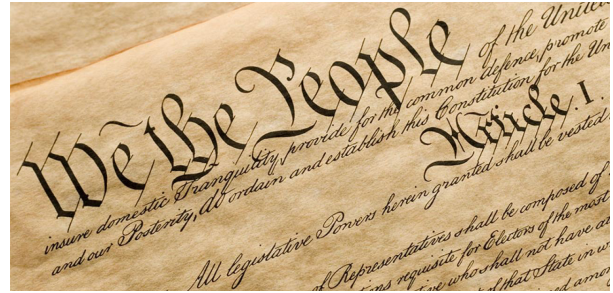 We the People of the United
insure domestic Tranquility, provide for the common defence, promote
and our Posterity, do ordain and establish this Constitution for the Un
Article. I.
All legislative Powers herein granted shall be vested
of Representatives shall be composed of
ns requisite for Electors of the most
who shall not have a
that State in w